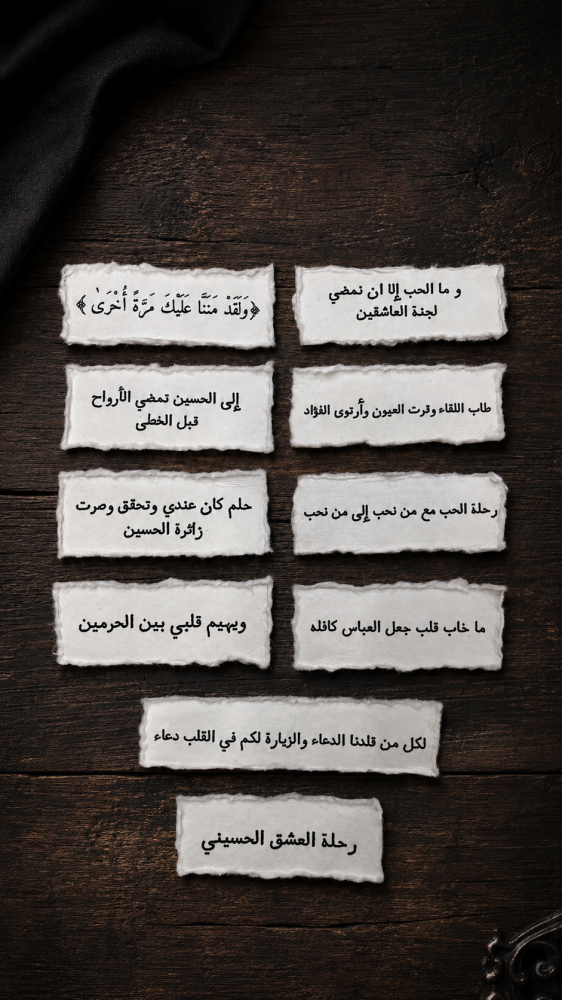 و ما الحب إلا ان نمضي
لجنة العاشقين
﴿وَلَقَدْ مَنَنَّا عَلَيْكَ مَرَّةً أُخْرَىٰ﴾
طاب اللقاء وقرت العيون وأرتوى الفؤاد
إلى الحسين تمضي الأرواح
قبل الخطى
رحلة الحب مع من نحب إلى من نحب
حلم كان عندي وتحقق وصرت
زائرة الحسين
ما خاب قلب جعل العباس كافله
ويهيم قلبي بين الحرمين
لكل من قلدنا الدعاء والزيارة لكم في القلب دعاء
رحلة العشق الحسيني